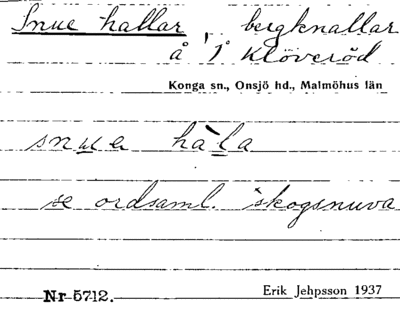 Snue hallar, bergknallar
å 1⁰ Klöveröd
Konga sn., Onsjö hd., Malmöhus län
snue hàla
se ordsaml. skogsnuva
Nr 5712.
Erik Jehpsson 1937